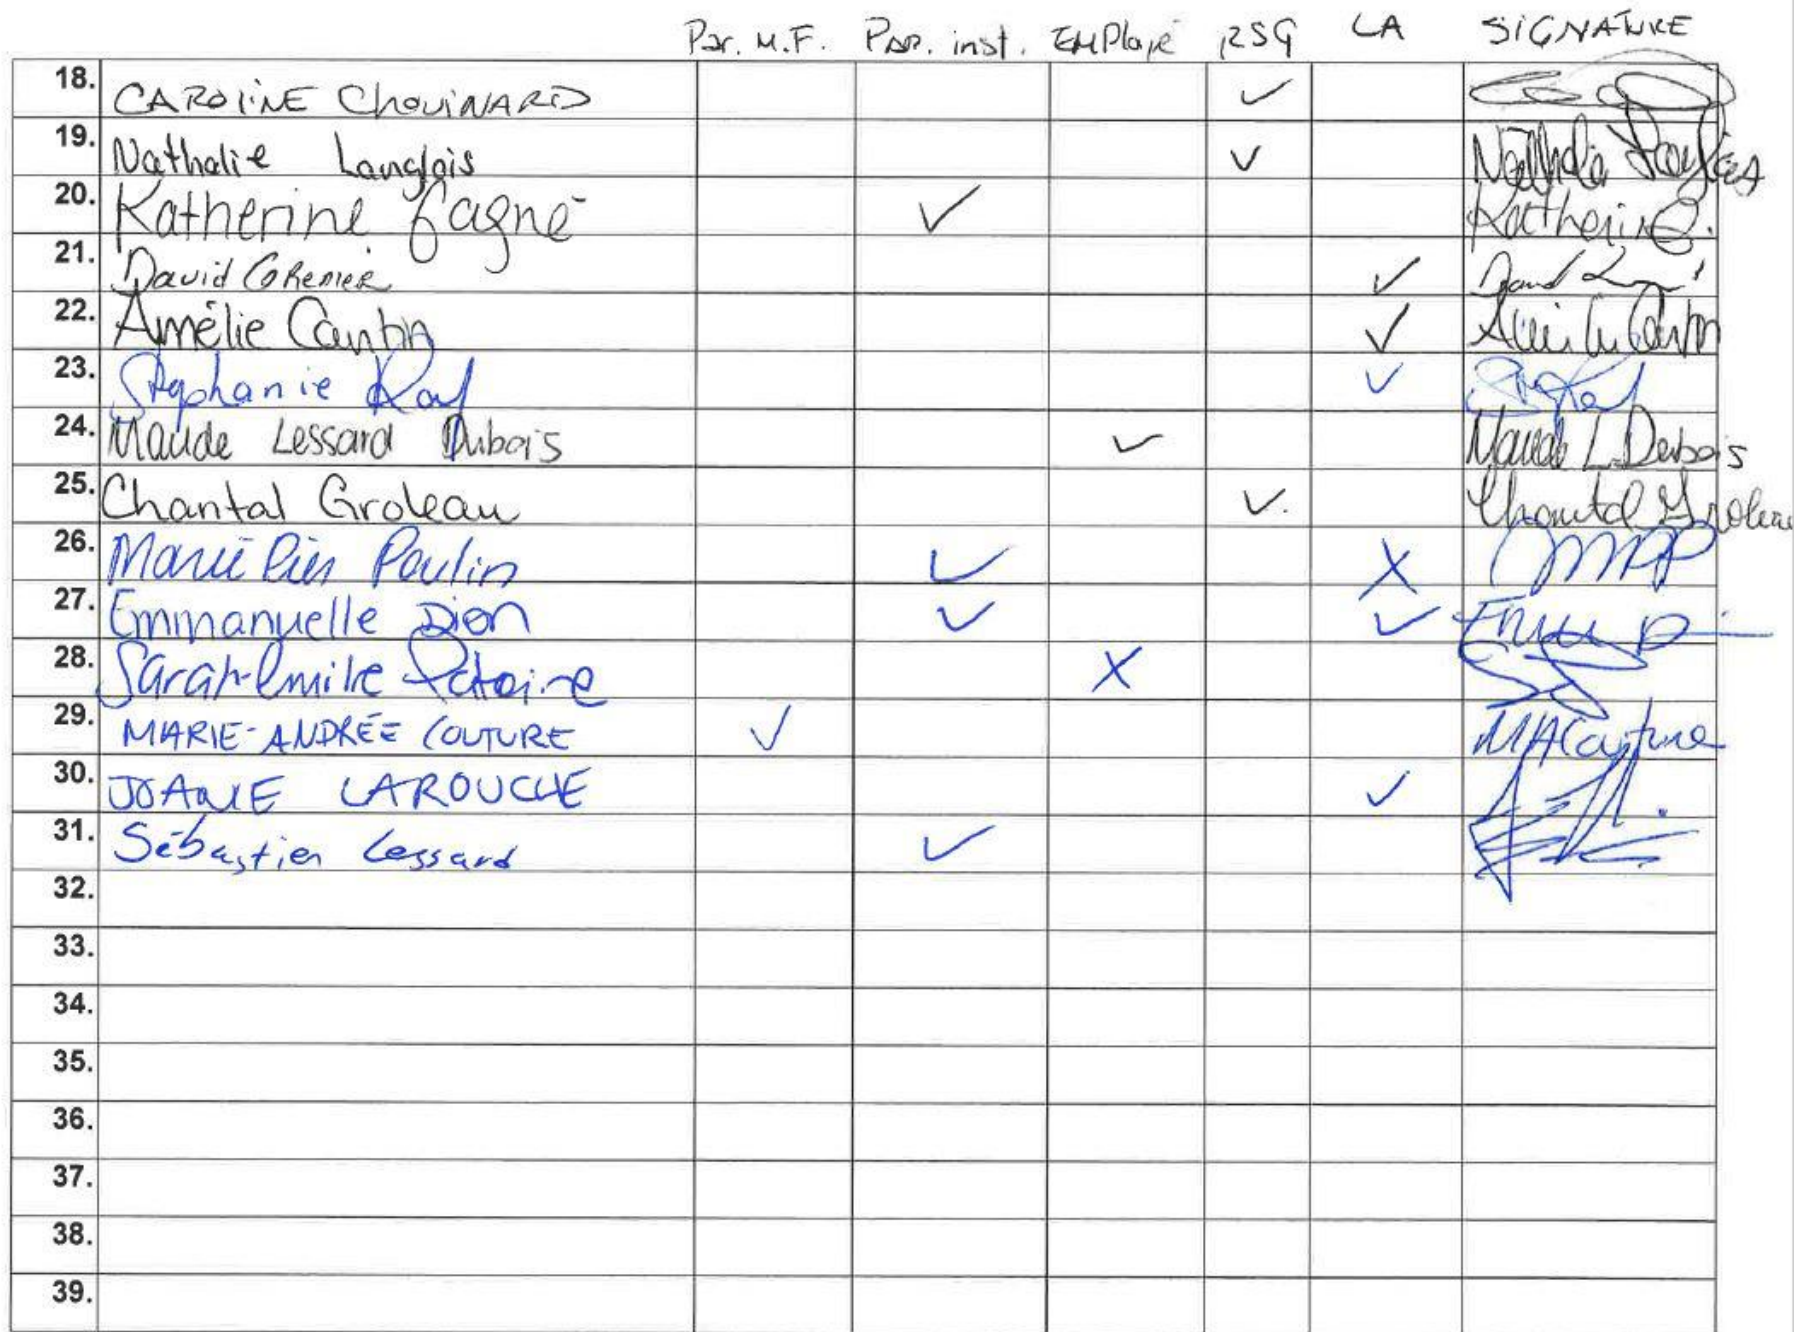 Par. M.F. Par. inst. EMPloyé RSG LA SIGNATURE
18. CAROLINE CHOUINARD ✓
19. Nathalie Langlois ✓ Nathalie Langlois
20. Katherine Gagné ✓ Katherine G.
21. David Grenier ✓ David
22. Amélie Cantin ✓ Amélie Cantin
23. Stéphanie Roy ✓
24. Maude Lessard Dubois ✓ Maude L. Dubois
25. Chantal Groleau ✓ Chantal Groleau
26. Marie Pier Poulin ✓ X MPP
27. Emmanuelle Dion ✓ ✓ Emm D
28. Sarah-Emilie Patoine X
29. MARIE-ANDRÉE COUTURE ✓ MACouture
30. JOANE LAROUCHE ✓
31. Sébastien Lessard ✓
32.
33.
34.
35.
36.
37.
38.
39.